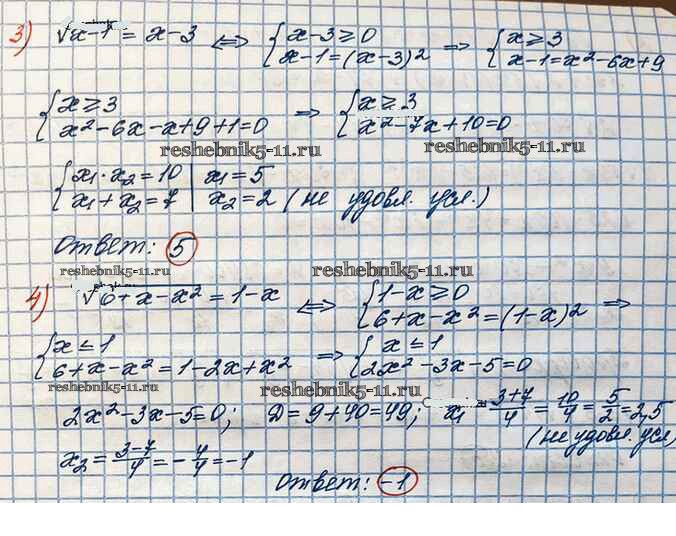 3) √x-1 = x-3 ⇔ { x-3 ≥ 0 ; x-1=(x-3)² ⇒ { x ≥ 3 ; x-1=x²-6x+9
{ x ≥ 3 ; x²-6x-x+9+1=0 ⇒ { x ≥ 3 ; x²-7x+10=0
reshebnik5-11.ru reshebnik5-11.ru
{ x₁·x₂=10 ; x₁+x₂=7 | x₁=5 ; x₂=2 (не удовл. усл.)
Ответ: 5
reshebnik5-11.ru reshebnik5-11.ru
4) √6+x-x² = 1-x ⇔ { 1-x ≥ 0 ; 6+x-x²=(1-x)² ⇒
{ x ≤ 1 ; 6+x-x²=1-2x+x² ⇒ { x ≤ 1 ; 2x²-3x-5=0
reshebnik5-11.ru
2x²-3x-5=0; D=9+40=49; x₁ = 3+7/4 = 10/4 = 5/2 = 2,5
(не удовл. усл)
x₂ = 3-7/4 = -4/4 = -1
reshebnik5-11.ru
Ответ: -1